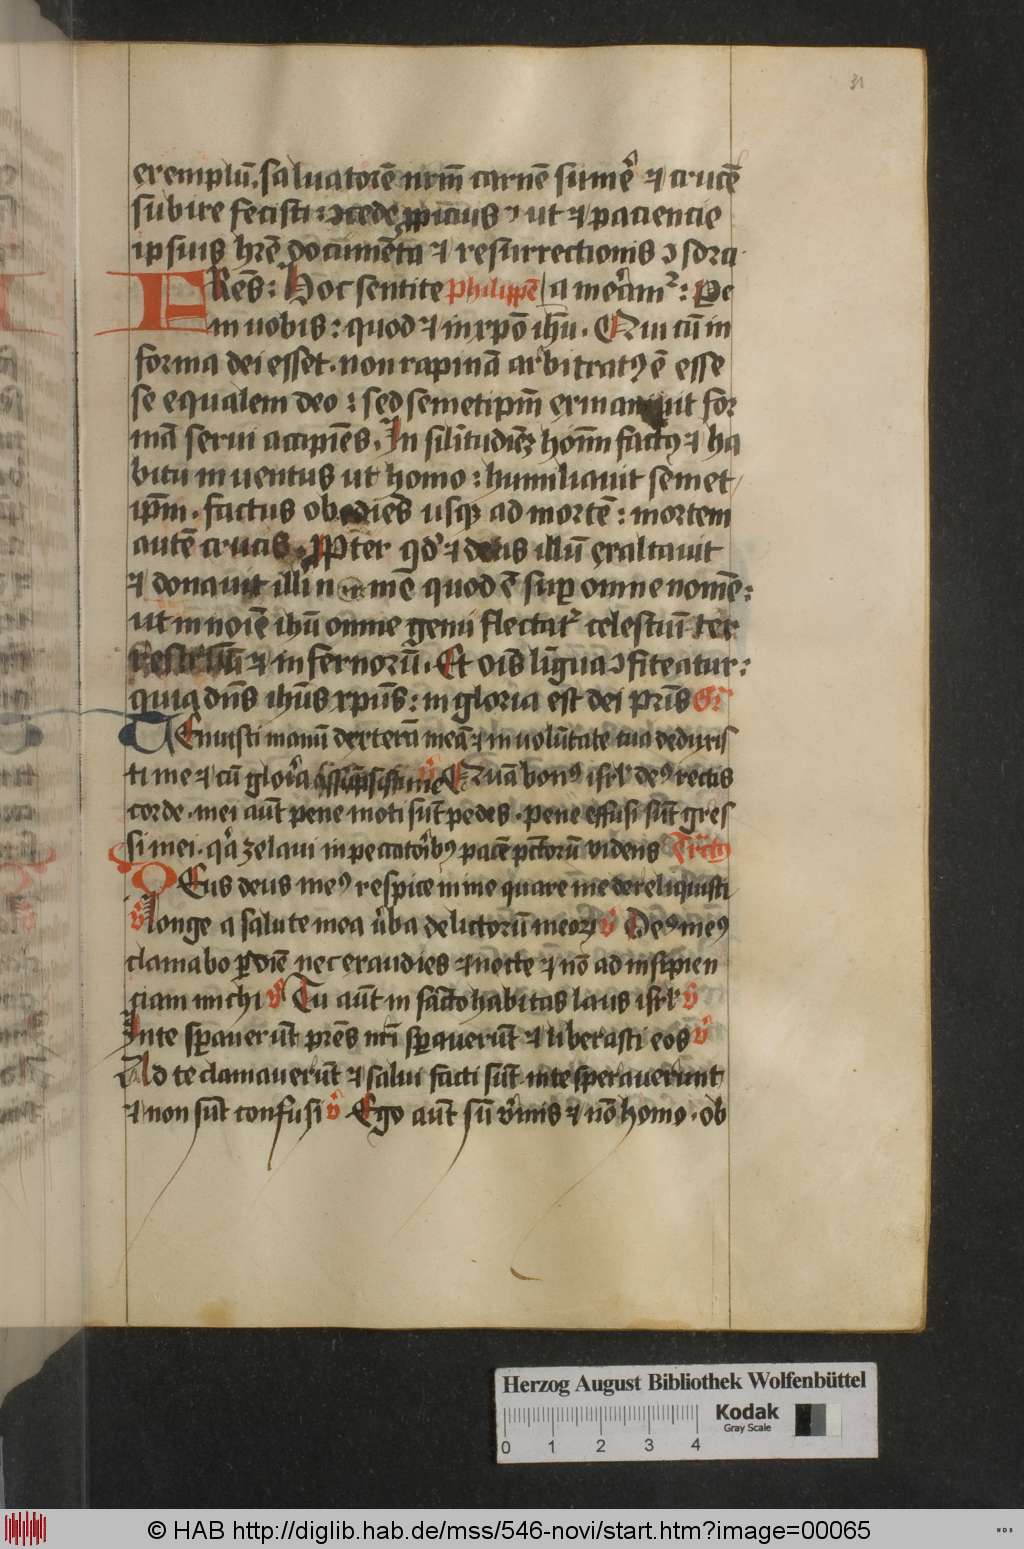 31
exemplū. saluatorē nrm̄ carnē sumē ⁊ crucē
subire fecisti: ɔcede ꝓpicius: ut ⁊ paciencie
ipsius hr̄e documēta ⁊ resurrectionis ɔsorcia
FRēs: Hoc sentite philippē
in uobis: quod ⁊ in xp̄o ih̄u. Qui cū in
forma dei esset. non rapinā arbitratꝰ ē esse
se equalem deo: sed semetipm̄ exinaniuit for
mā serui accipiēs. In silitudiēꝫ hoīm factꝰ ⁊ ha
bitu inuentus ut homo: humiliauit semet
ipm̄. factus obediēs usqꝫ ad mortē: mortem
autē crucis. Ppter qd̓ ⁊ deus illū exaltauit
⁊ donauit illi nomē quod ē suꝑ omne nomē:
ut in noīe ih̄u omne genu flectatᷣ celestiū ter
restriū ⁊ infernorū. Et oīs līgua ɔfiteatur:
quia dn̄s ih̄us xp̄us: in gloria est dei pr̄is Gᷓ
TEnuisti manū dexterā meā ⁊ in volūtate tua deduxis
ti me ⁊ cū glor̓a assūpsisti me v̓ Quā bonꝰ isrl̓ deꝰ rectis
corde. mei aūt pene moti sūt pedes. pene effusi sūt gres
si mei. qᷓ zelaui in peccatorībꝰ pacē pctōrū videns Trctꝰ
DEus deus meꝰ respice in me quare me dereliquisti
v̓ longe a salute mea v̓ba delictorū meoꝝ v̓ Deꝰ meꝰ
clamabo ꝑ diē nec exaudies ⁊ nocte ⁊ nō ad insipien
ciam michi v̓ Tu aūt in sācto habitas laus isrl̓ v̓
Inte sꝑauerūt pr̄es nr̄i sꝑauerūt ⁊ liberasti eos v̓
Ad te clamauerūt ⁊ salui facti sūt inte sperauerunt
⁊ non sūt confusi v̓ Ego aūt sū v̓mis ⁊ nō homo. ob
Herzog August Bibliothek Wolfenbüttel
Kodak
Gray Scale
0 1 2 3 4
© HAB http://diglib.hab.de/mss/546-novi/start.htm?image=00065